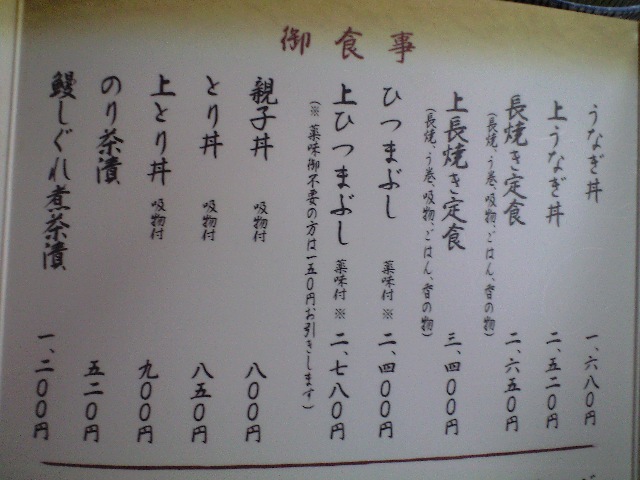 御食事
うなぎ丼 一、六八〇円
上うなぎ丼 二、五二〇円
長焼き定食 二、六五〇円
(長焼、う巻、吸物、ごはん、香の物)
上長焼き定食 三、四〇〇円
(長焼、う巻、吸物、ごはん、香の物)
ひつまぶし 薬味付※ 二、四〇〇円
上ひつまぶし 薬味付※ 二、七八〇円
(※薬味御不要の方は一五〇円お引きします)
親子丼 吸物付 八〇〇円
とり丼 吸物付 八五〇円
上とり丼 吸物付 九〇〇円
のり茶漬 五二〇円
鰻しぐれ煮茶漬 一、二〇〇円